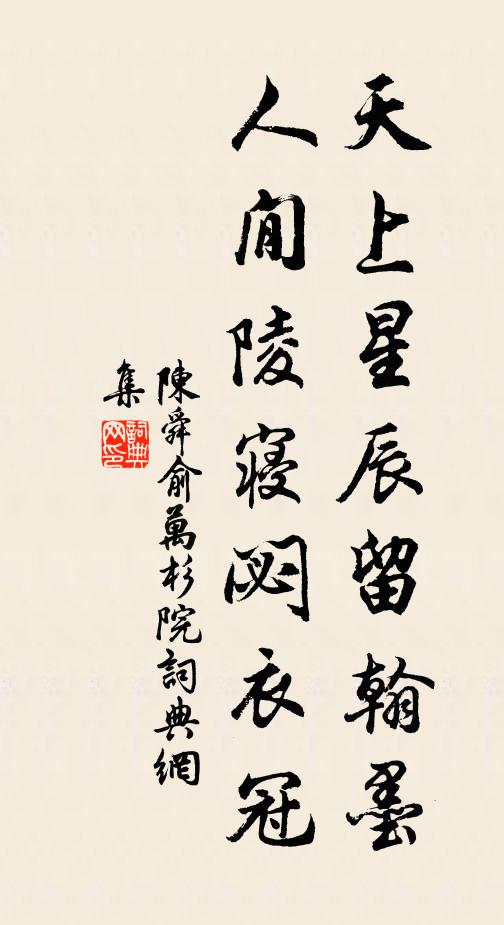 天上星辰留翰墨
人間陵寝閟衣冠
陳舜俞萬杉院詞典網
集
詞典
网印